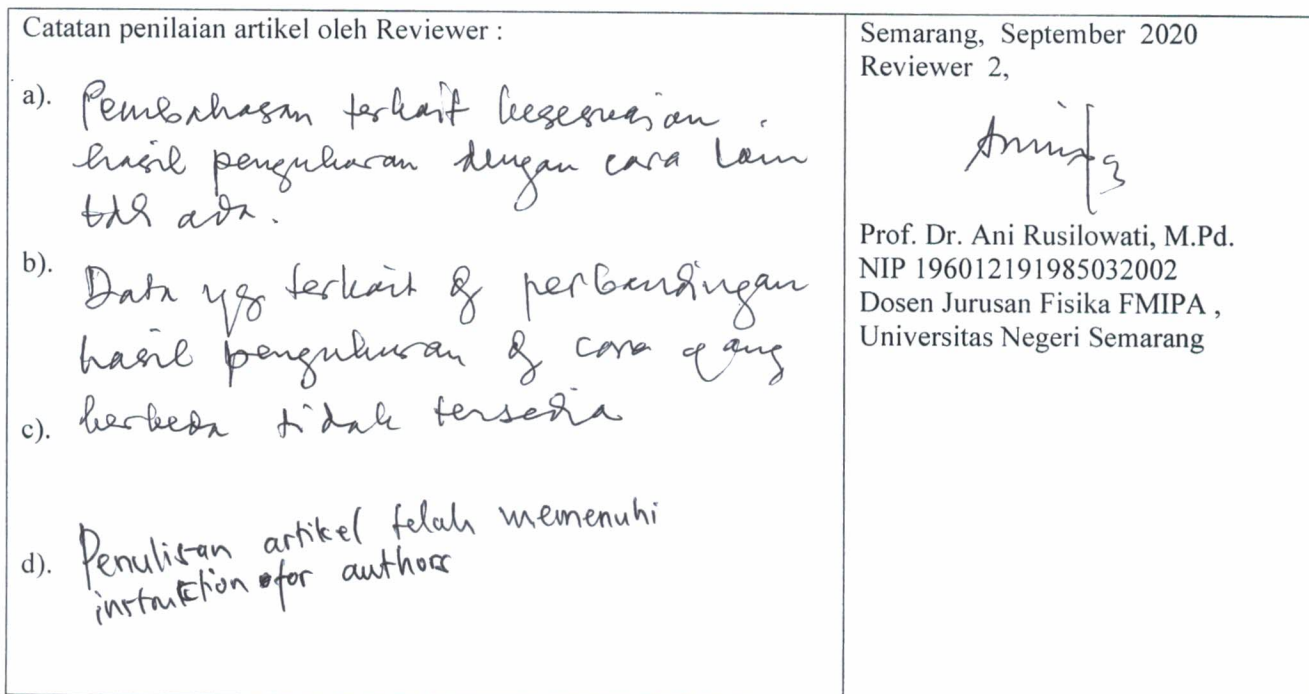 Catatan penilaian artikel oleh Reviewer :
a). Pembahasan terkait kesesuaian
hasil pengukuran dengan cara lain
tdk ada.
b). Data yg terkait dg perbandingan
hasil pengukuran dg cara yang
c). berbeda tidak tersedia
d). Penulisan artikel telah memenuhi
instruktion for authors
Semarang, September 2020
Reviewer 2,
Prof. Dr. Ani Rusilowati, M.Pd.
NIP 196012191985032002
Dosen Jurusan Fisika FMIPA ,
Universitas Negeri Semarang